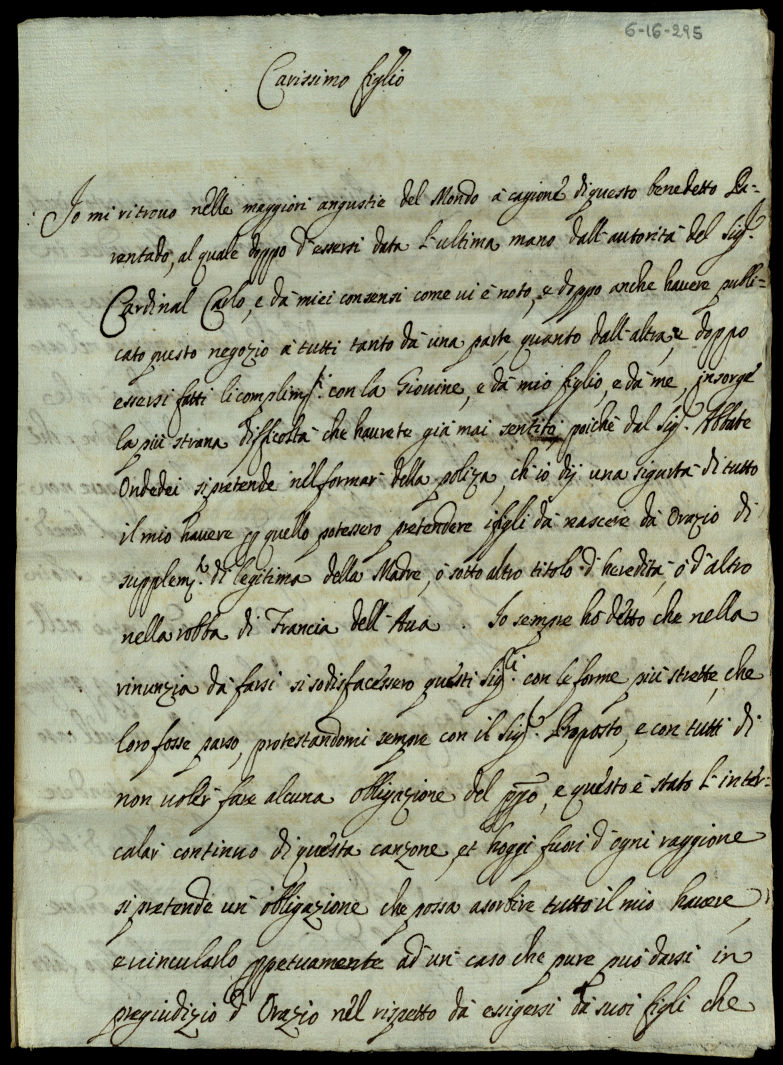 6-16-295
Carissimo figlio
Io mi ritrovo nelle maggiori angustie del Mondo à cagione di questo benedetto Pa=
rentado, al quale doppo d'essersi data l'ultima mano dall'autorità del Sig.r
Cardinal Carlo, e dà miei consensi come vi è noto, e doppo anche havere publi=
cato questo negozio à tutti tanto dà una parte, quanto dall'altra, e doppo
essersi fatti li complim.ti con la Giovine, e dà mio figlio, e dà me, insorge
la più strana difficoltà che haurete già mai sentito, poiche dal Sig.r Abbate
Ondedei si pretende nel formar della poliza, ch'io dij una sigurtà di tutto
il mio havere p quello potessero pretendere i figli dà nascere dà Orazio di
supplem.to di legitima della Madre, ò sotto altro titolo d'heredità, ò d'altro
nella robba di Francia dell'Ava. Io sempre hò detto che nella
rinunzia dà farsi si sodisfacessero questi Sig.ri con le forme più strette, che
loro fosse parso, protestandomi sempre con il Sig.r Proposto, e con tutti di
non voler fare alcuna obligazione del ppō, e questo è stato l'inter=
calar continuo di questa canzone, et hoggi fuori d'ogni raggione
si pretende un'obligazione che possa asorbire tutto il mio havere,
e vincularlo ppetuamente ad un caso che pure può darsi in
pregiudizio d'Orazio nel rispetto dà essigersi dà suoi figli che